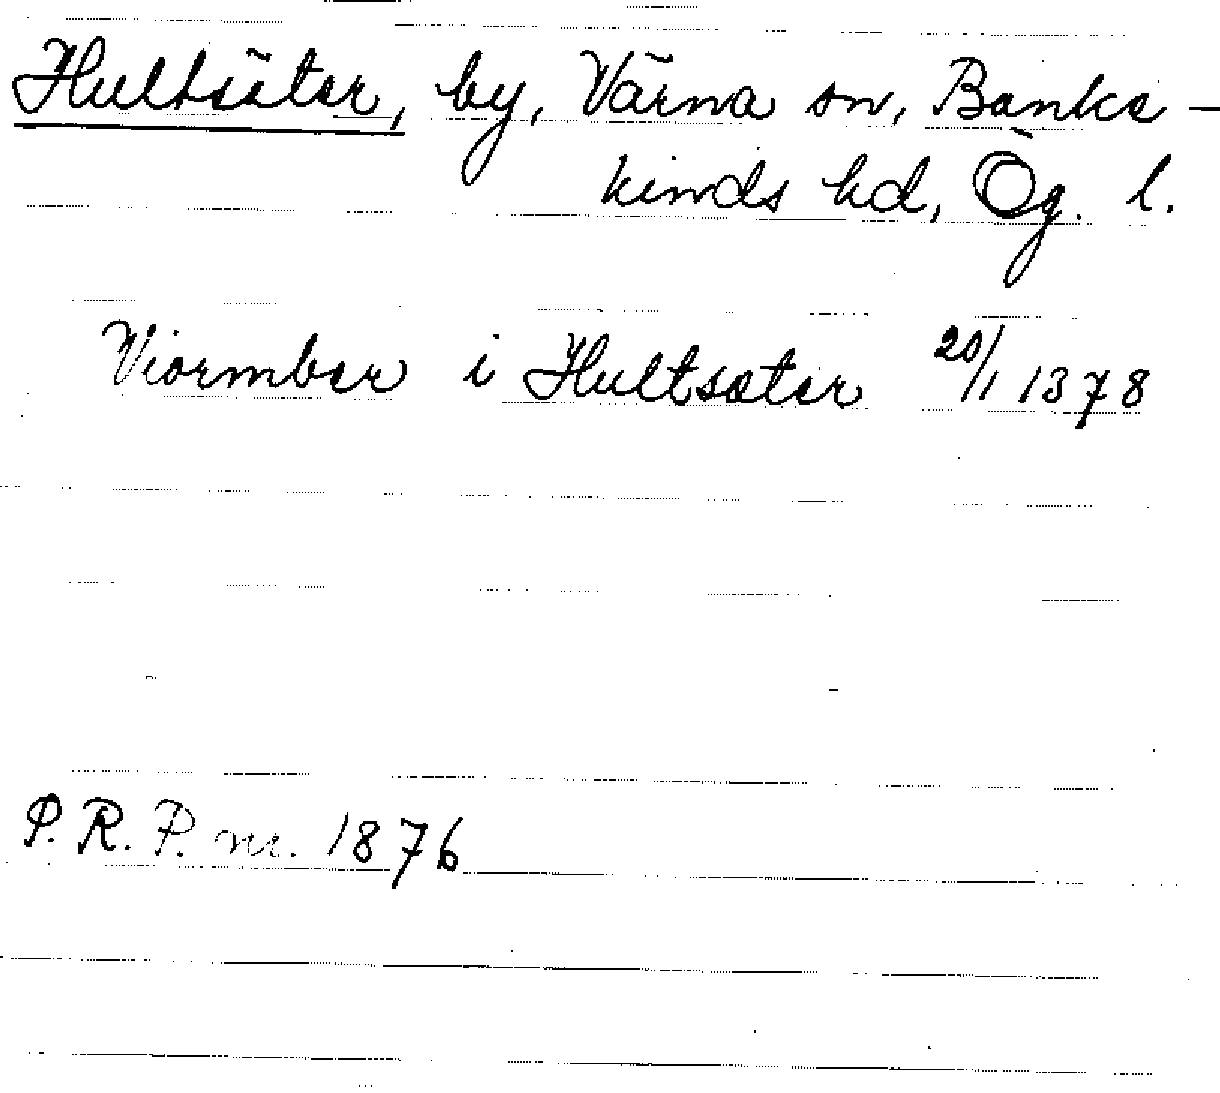 Hultsäter, by, Värna sn, Banke-
kinds hd, Ög. l.
Viormber i Hultsæter 20/1 1378
P. R. P. nr. 1876